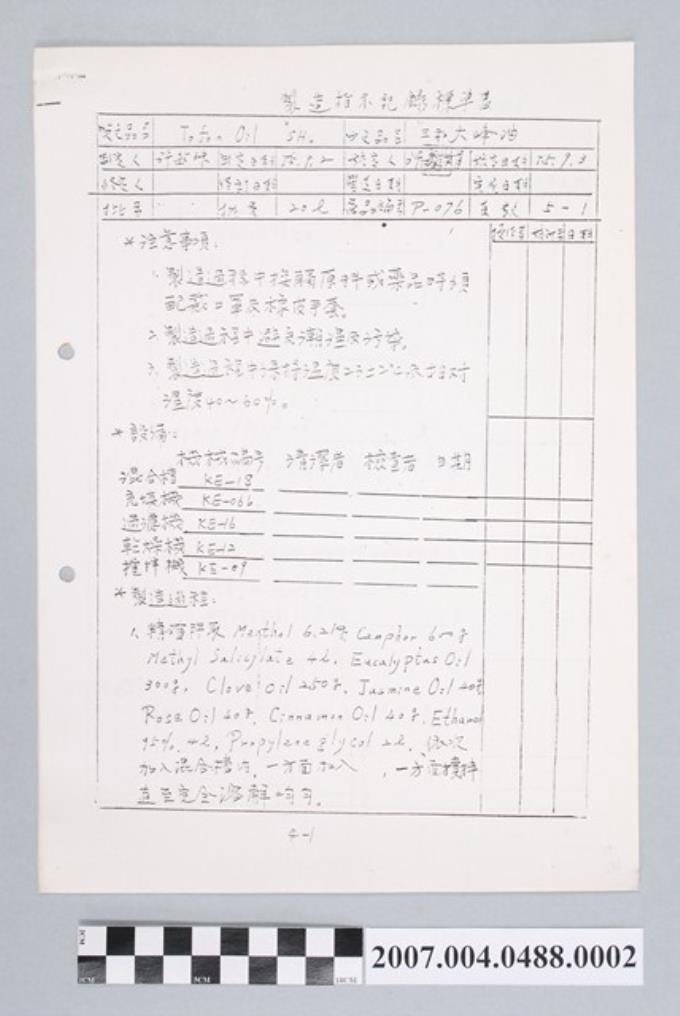 製造指示記錄標準書
英文品名 Tofon Oil SH. 中文品名 三和大峰油
制定人 制定日期 75.9.2 核定人 核定日期 75.9.3
修定人 修訂日期 實施日期
批號 批量 20ℓ 產品編號 P-076 頁數 5-1
操作者 核對者 日期
*注意事項:
1. 製造過程中接觸原料或藥品時須
配戴口罩及橡皮手套。
2. 製造過程中避免潮濕及污染。
3. 製造過程中保持溫度 相對
濕度40~60%。
*設備:
機械編號 清潔者 檢查者 日期
混合槽 KE-18
充填機 KE-066
過濾機 KE-16
乾燥機 KE-12
攪拌機 KE-09
*製造過程:
1. 精確秤取 Menthol 6.21% Camphor 600g
Methyl Salicylate 4ℓ. Eucalyptus Oil
300g. Clove Oil 250g. Jasmine Oil 40g
Rose Oil 40g. Cinnamon Oil 40g. Ethanol
95% 4ℓ, Propylene glycol 2ℓ. 依次
加入混合槽內,一方面加入 ,一方面攪拌
直至完全溶解均勻。
4-1
2007.004.0488.0002
1CM 5CM 10CM